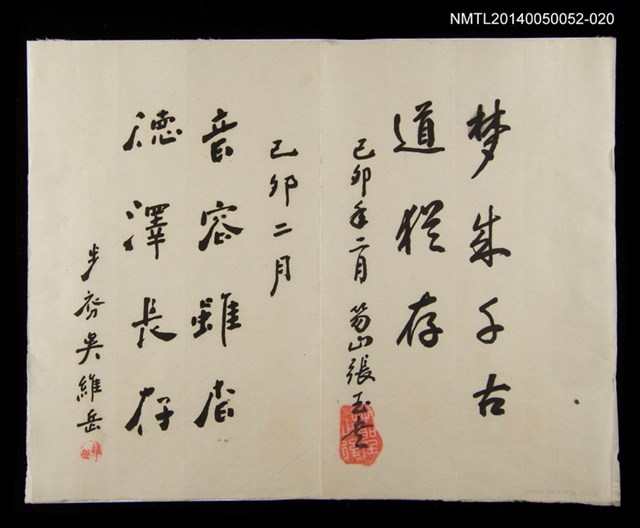 NMTL20140050052-020
梦成千古
道猶存
己卯年二月 笏山張玉書
音容雖杳
德澤長存
己卯二月
步齊吳維岳